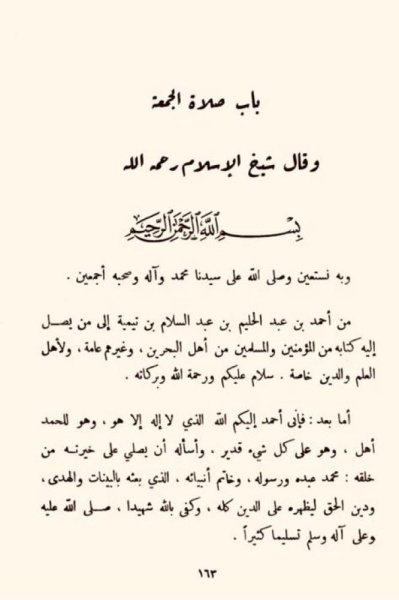 باب صلاة الجمعة
وقال شيخ الإسلام رحمه الله
بسم الله الرحمن الرحيم
وبه نستعين وصلى الله على سيدنا محمد وآله وصحبه أجمعين .
من أحمد بن عبد الحليم بن عبد السلام بن تيمية إلى من يصل
إليه كتابه من المؤمنين والمسلمين من أهل البحرين ، وغيرهم عامة ، ولأهل
العلم والدين خاصة . سلام عليكم ورحمة الله وبركاته .
أما بعد : فإنى أحمد إليكم الله الذي لا إله إلا هو ، وهو للحمد
أهل ، وهو على كل شيء قدير ، وأسأله أن يصلي على خيرته من
خلقه : محمد عبده ورسوله ، وخاتم أنبيائه ، الذي بعثه بالبينات والهدى،
ودين الحق ليظهره على الدين كله ، وكفى بالله شهيدا ، صلى الله عليه
وعلى آله وسلم تسليما كثيراً .
١٦٣